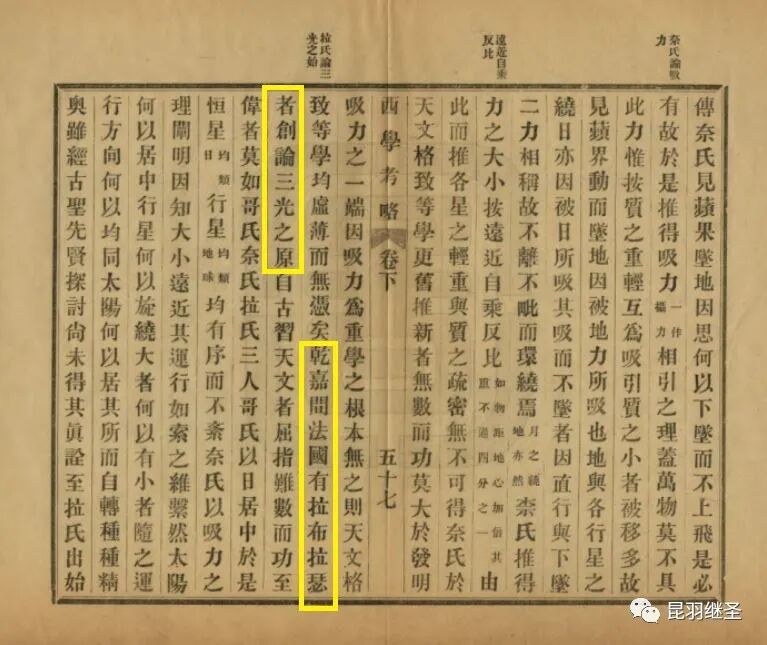 奈氏論吸
力
遠近自乘
反比
拉氏論三
光之始
傳奈氏見蘋果墜地因思何以下墜而不上飛是必
有故於是推得吸力一作攝力相引之理蓋萬物莫不具
此力惟按質之重輕互爲吸引質之小者被移多故
見蘋界動而墜地因被地力所吸也地與各行星之
繞日亦因被日所吸其吸而不墜者因直行與下墜
二力相稱故不離不毗而環繞焉月之繞地亦然柰氏推得
力之大小按遠近自乘反比如物距地心加倍其重不過四分之一由
此而推各星之輕重與質之疏密無不可得奈氏於
天文格致等學更舊推新者無數而功莫大於發明
西學考略 卷下 五十七
吸力之一端因吸力爲重學之根本無之則天文格
致等學均虛薄而無憑矣乾嘉間法國有拉布拉瑟
者創論三光之原自古習天文者屈指難數而功至
偉者莫如哥氏奈氏拉氏三人哥氏以日居中於是
恒星均類日行星均類地球均有序而不紊奈氏以吸力之
理闡明因知大小遠近其運行如索之維繫然太陽
何以居中行星何以旋繞大者何以有小者隨之運
行方向何以均同太陽何以居其所而自轉種種精
奧雖經古聖先賢探討尙未得其眞詮至拉氏出始
昆羽继圣